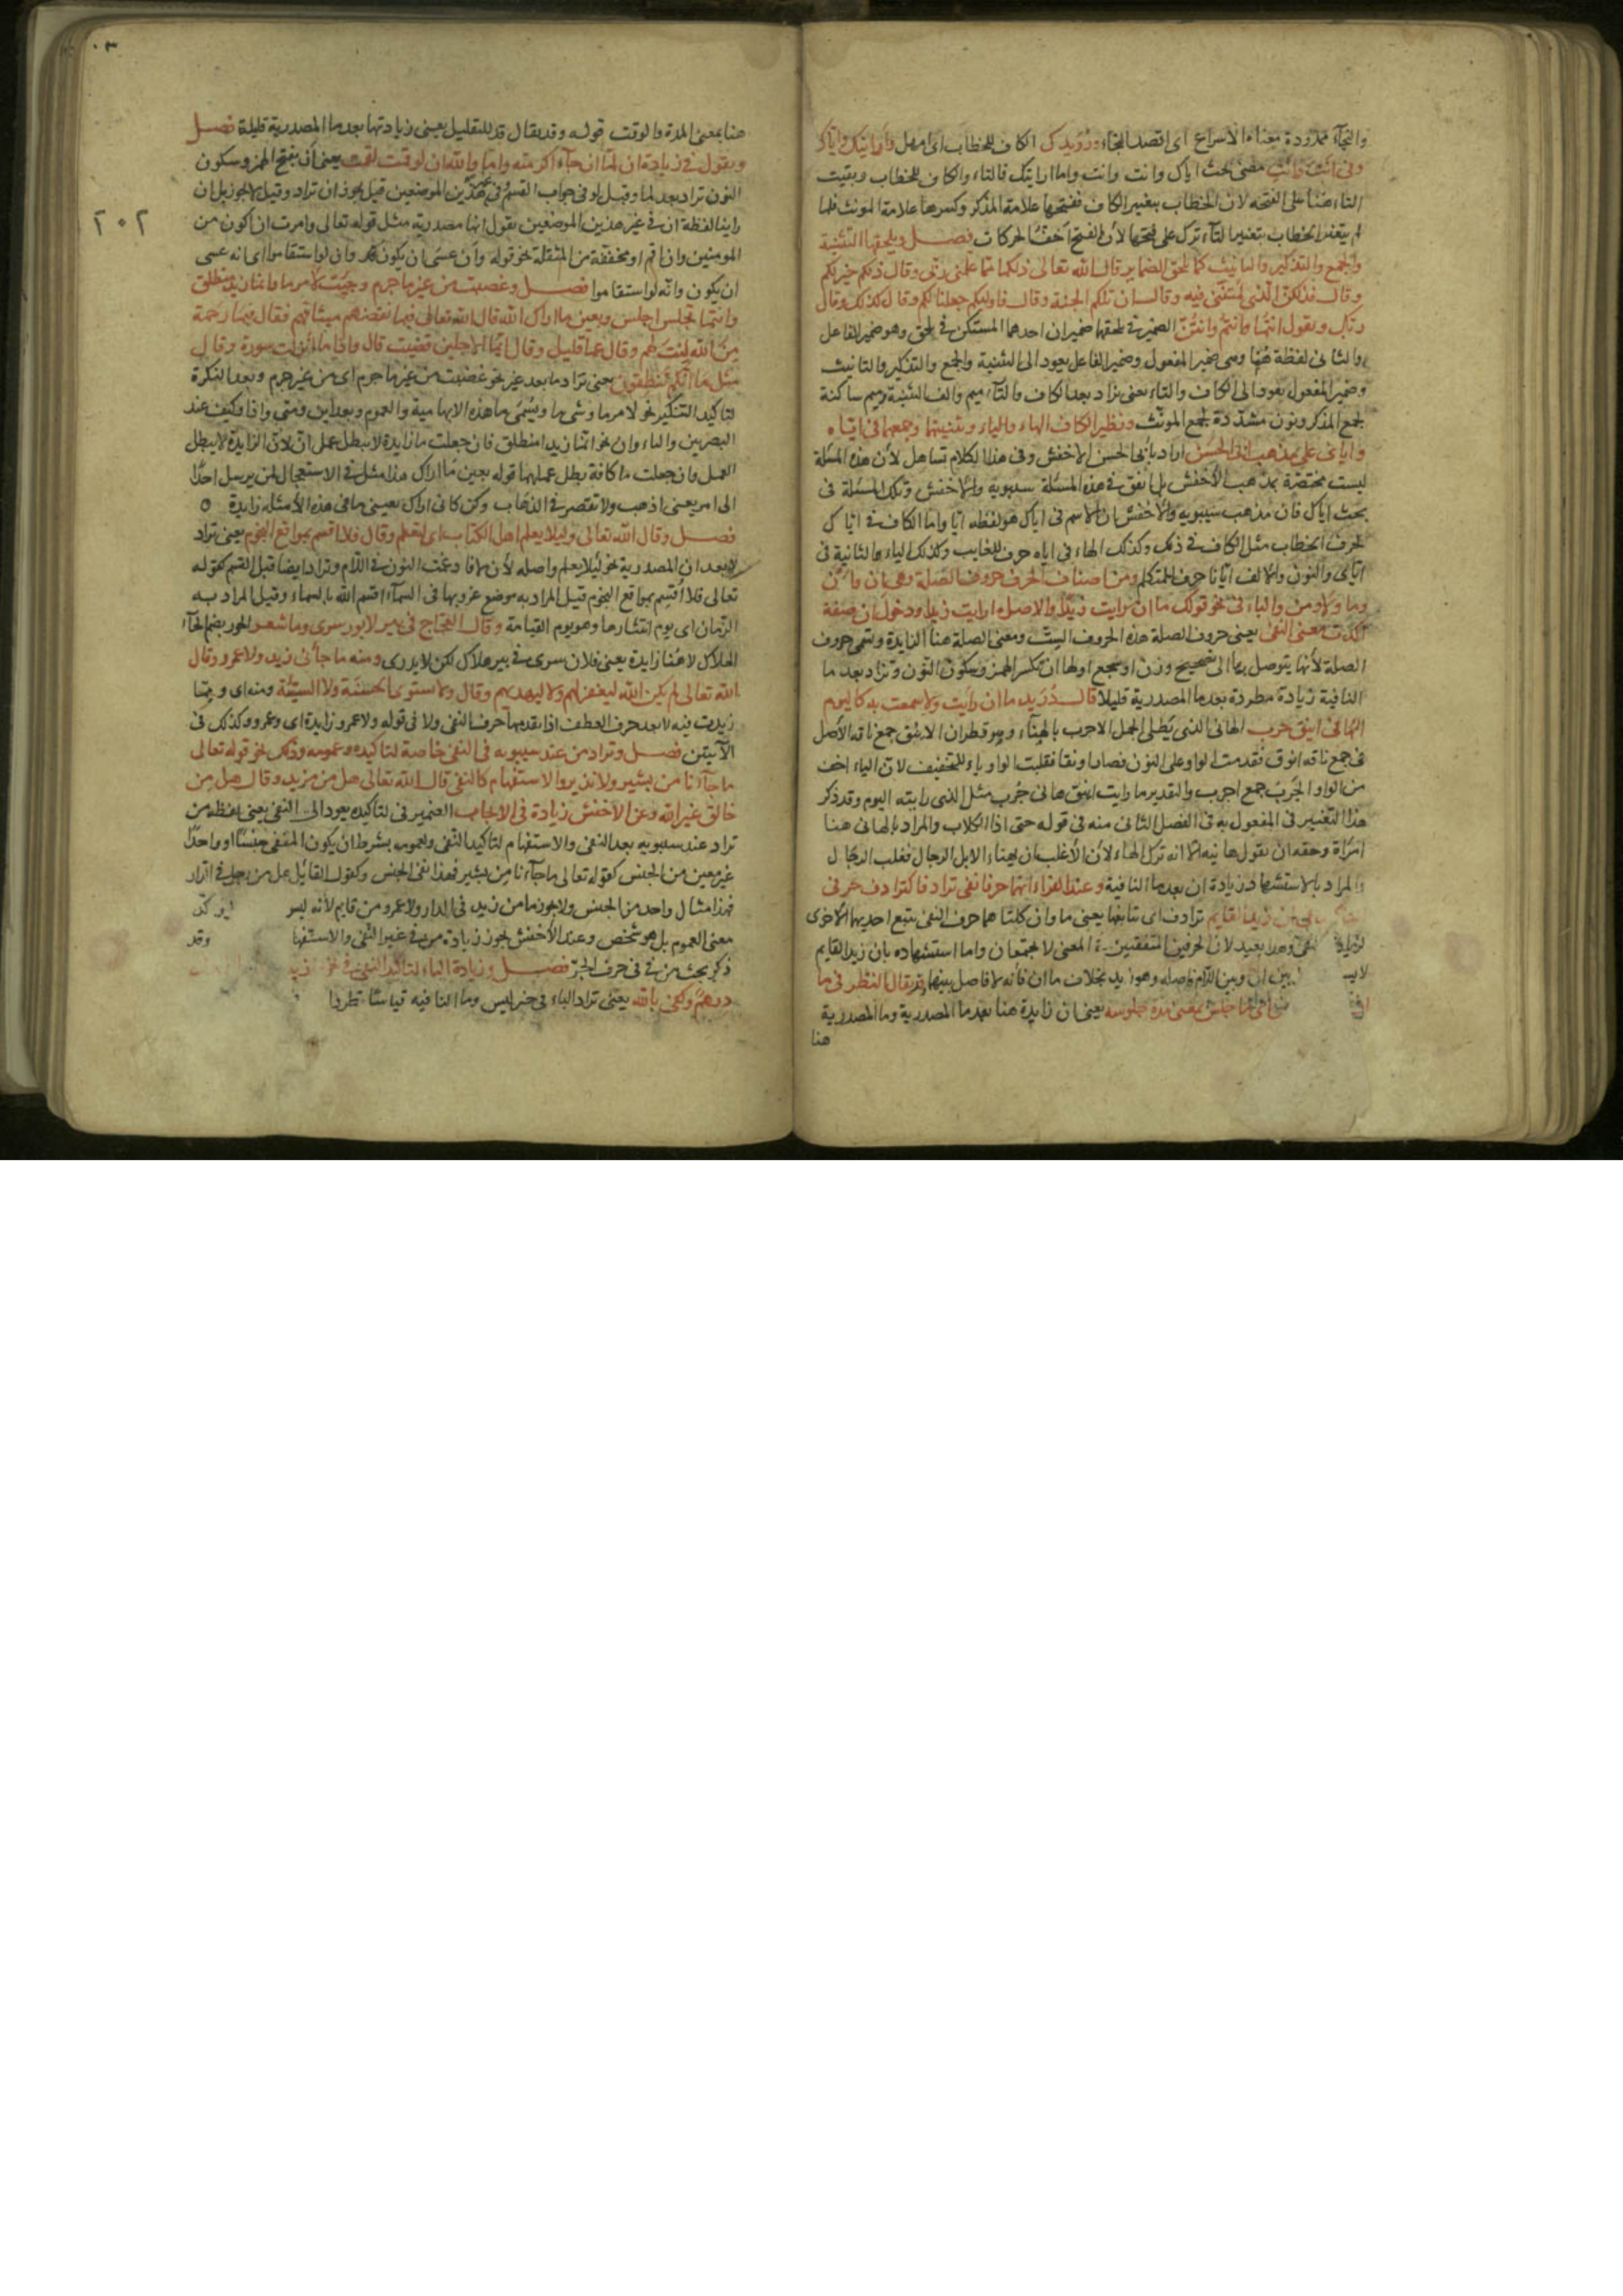 والنجآء ممدودة معناه الاسراع اى اقصد النجاء ورويدك الكاف للخطاب اى امهل وأرايتك واياك
وفى انتَ وانتِ مضى بحث اياك وانت وانت واما ارايتك فالتاء والكاف للخطاب وبقيت
التاء هنا على الفتحه لان الخطاب بتغير الكاف ففتحها علامة المذكر وكسرها علامة المونث فلما
لم يتغير الخطاب بتغير التآء ترك على فتحها لأن الفتح أخف الحركات فصل ويلحقها التثنية
والجمع والتذكير والتانيث كما تلحق الضماير قال الله تعالى ذلكما مما علمنى ربى وقال ذلكم خير لكم
وقال فذلكن الذى لمتننى فيه وقال ان تلكم الجنة وقال فاوليكم جعلنا لكم وقال كذلك قال
ربك ويقول انتما وانتم وانتن الضمير فى يلحقها ضميران احدهما المستكن فى يلحق وهو ضمير الفاعل
والثانى لفظة ها وهى ضمير المفعول وضمير الفاعل يعود الى التثنية والجمع والتذكير والتانيث
وضمير المفعول يعود الى الكاف والتاء يعنى تزاد بعد الكاف والتآء ميم والف التثنية وميم ساكنة
لجمع المذكر ونون مشددة لجمع المونث ونظير الكاف الهاء والياء وتثنيتها وجمعها فى اياه
واياى على مذهب ابى الحسن اراد بابى الحسن الاخفش وفى هذا الكلام تساهل لأن هذه المسئلة
ليست مختصة بمذهب الأخفش بل اتفق فى هذه المسئلة سيبويه والاخفش وتلك المسئلة فى
بحث اياك فان مذهب سيبويه والاخفش ان الاسم فى اياك هو لفظه ايا واما الكاف فى اياك
لحرف الخطاب مثل الكاف فى ذلك وكذلك الهاء فى اياه حرف للغايب وكذلك الياء الثانية فى
اياى والنون والالف ايانا حرف المتكلم ومن اصناف الحرف حروف الصلة وهى إن وأن
وما ولا ومن والباء فى نحو قولك ما ان رايت زيدًا والاصل ما رايت زيدا ودخول ان صفة
اكدت معنى النفى يعنى حروف الصلة هذه الحروف الستّ ومعنى الصلة هنا الزايدة وتسمى حروف
الصلة لأنها يتوصل بها الى تصحيح وزن او سجع اولها ان بكسر الهمز وسكون النون وتزاد بعد ما
النافية زيادة مطردة بعد ما المصدرية قليلا قال دريد ما ان رايت ولا سمعت به كاليوم
هانى اينق جرب الهانى الذى يطلى الجمل الاجرب بالهناء وهو قطران الاينق جمع ناقه الأصل
فى جمع ناقه انوق فقدمت الواو على النون فصار اونقا فقلبت الواو ياء للتخفيف لان الياء اخف
من الواو الجُرب جمع اجرب والتقدير ما رايت اينق هانى جُرب مثل الذى رايته اليوم وقد ذكر
هذا التغيير فى المفعول به فى الفصل الثانى منه فى قوله حتى اذا الكلاب والمراد بالهانى هنا
امرأة وحقه ان يقول هانيه الا انه ترك الهاء لأن الأغلب ان يهناء الابل الرجال فغلب الرجال
والمراد بالاستشهاد زيادة ان بعد ما النافية وعند الفراء انهما حرفا نفى ترادفا كترادف حرفى
ان زيدا لقايم ترادف اى تتابعا يعنى ما وان كلتا هما حرف النفى يتبع احديهما الأخرى
وهذا بعيد لان الحرفين المتفقين فى المعنى لا يجتمعان واما استشهاده بان زيدا لقايم
بين ان وبين اللام فاصله وهو زيد بخلاف ما ان فأنه لا فاصل بينهما وقد يقال انتظر فى ما
جلس بمعنى مدة جلوسه يعنى ان زايدة هنا بعد ما المصدرية وما المصدرية
هنا
٢٠٢
هنا بمعنى المدة والوقت قوله وقد يقال قد للتقليل يعنى زيادتها بعد ما المصدرية قليلة فصل
ويقول فى زيادة ان لمّا ان جآء اكرمته واما والله ان لو قمت لقمت يعنى أن بفتح الهمز وسكون
النون تزاد بعد لما وقبل لو فى جواب القسم فى هذين الموضعين قيل يجوز ان تزاد وقيل لا يجوز بل ان
راينا لفظة ان فى غير هذين الموضعين نقول انها مصدرية مثل قوله تعالى وامرت ان اكون من
المومنين وان اقم او مخففة من المثقلة نحو قوله وأن عسَى ان يكون وان لو استقاموا اى انه عسى
ان يكون وانه لو استقاموا فصل وغضبت من غير ما جرم وجئت لامر ما وانما زيد منطلق
واينما تجلس اجلس وبعين ما اراك الله قال الله تعالى فبما نقضهم ميثاقهم فقال فبما رحمة
مِن الله لِنت لهم وقال عما قليل وقال ايما الاجلين قضيت قال واذا ما انزلت سورة وقال
مثل ما انكم تنطقون يعنى تزاد ما بعد غير نحو غضبت من غير ما جرم اى من غير جرم وبعد النكرة
لتاكيد التنكير نحو لامر ما وشى ما ويسُمى ما هذه الابهامية والعموم وبعد اين ومتى واذا وكيف عند
البصريين والباء وان نحو انما زيدا منطلق فان جعلت ما زايدة لا يبطل عمل ان لان الزايدة لا يبطل
العمل وان جعلت ما كافة بطل عملها قوله بعين مَا اراك هذا مثل فى الاستعجال لمن يرسل احدًا
الى امر يعنى اذهب ولا تقتصر فى الذهاب وكن كانى اراك يعنى ما فى هذه الأمثلة زايدة ○
فصل وقال الله تعالى ليلا يعلم اهل الكتاب اى ليعلم وقال فلا اقسم بمواقع النجوم يعنى تزاد
لا بعد ان المصدرية نحو لئيلا يعلم واصله لأن لا فادغمت النون فى اللام وتزاد ايضا قبل القسم كقوله
تعالى فلا أُقسِم بمواقع النجوم قيل المراد به موضع غروبها فى السمآء اقسم الله بالسماء وقيل المراد به
الزمان اى يوم انتشارها وهو يوم القيامة وقال العجاج فى بير لا حور سرى وما شعر الحور بضم الحآء
الهلاك لا هُنا زايدة يعنى فلان سرى فى بير هلاك لكن لا يدرى ومنه ما جائنى زيد ولا عمرو وقال
الله تعالى لم يكن الله ليغفر لهم ولا ليهديهم وقال ولا تستوى الحسنة ولا السيّئة ومنه اى ومما
زيدت فيه لا بعد حرف العطف اذا تقدمها حرف النفى ولا فى قوله ولا عمرو زايدة اى وعمرو وكذلك فى
الآيتين فصل وتزاد من عند سيبويه فى النفى خاصة لتاكيده وعمومه وذلك نحو قوله تعالى
ما جآءنا من بشير ولا نذير والاستفهام كالنفى قال الله تعالى هل من مزيد وقال هل من
خالق غير الله وعن الأخفش زيادة فى الايجاب الضمير فى لتاكيده يعود الى النفى يعنى لفظه من
تزاد عند سيبويه بعد النفى والاستفهام لتاكيد النّفى ولعمومه بشرط ان يكون المنفى جنسًا او واحدًا
غير معين من الجنس كقوله تعالى ما جآءنا مِن بشير فهذا نفى الجنس وكقول القائيل هل من رجل فى الدار
فهذا مثال واحد من الجنس ولا يجوز ما من زيد فى الدار ولا عمرو من قايم لأنه ليس
معنى العموم بل هو شخص وعند الأخفش يجوز زيادة من فى غير النّفى والاستفها وقد
ذكر بحث من فى حرف الجرّ فصل وزيادة الباء لتاكيد النفى فى
درهمٌ وكفى بالله يعنى تزاد الباء فى خبر ليس وما النافيه قياسًا